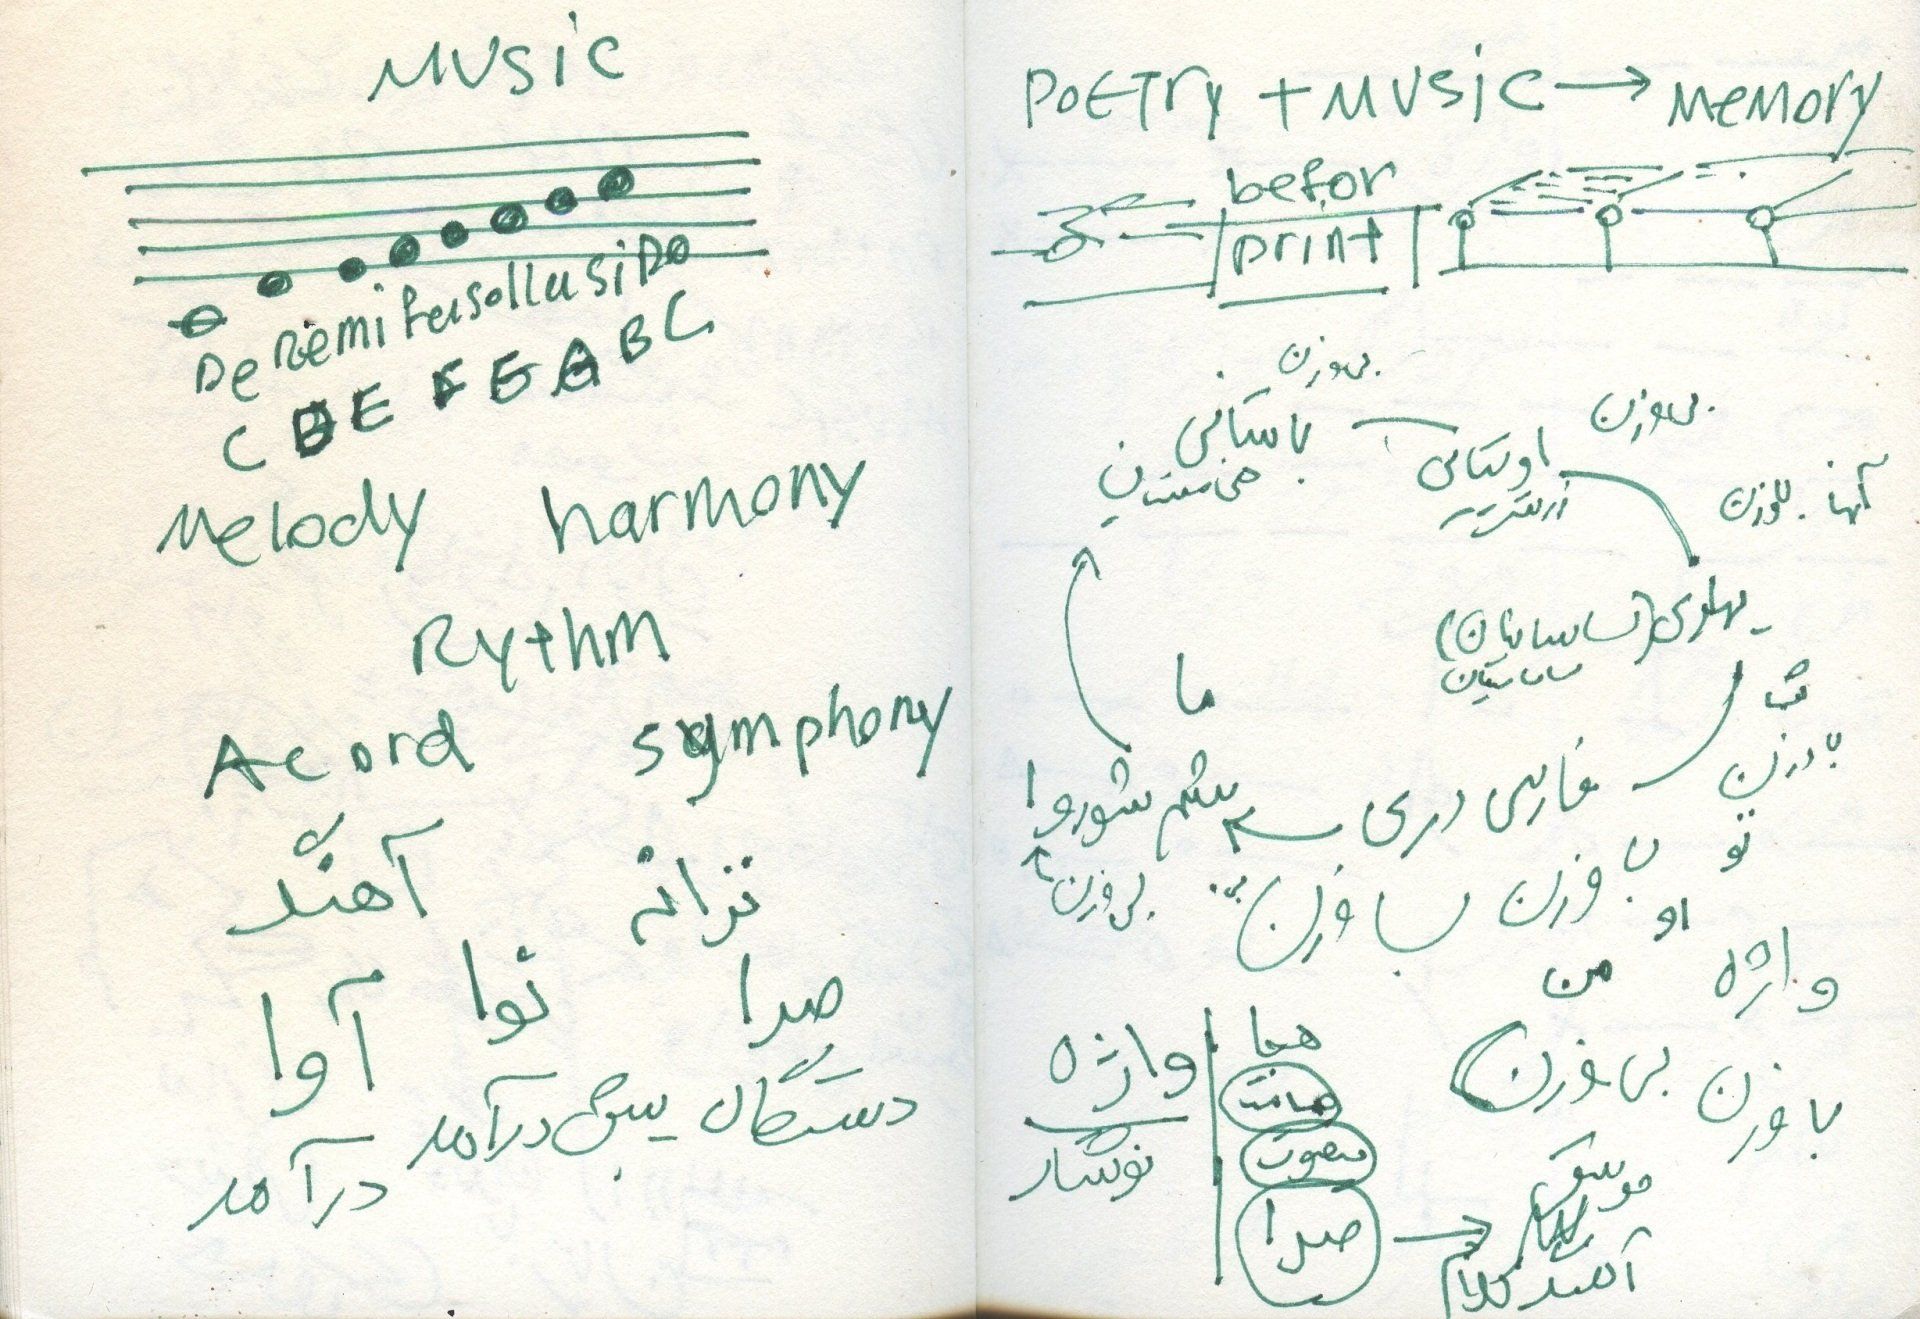 MUSIC
De Remi fa sol la si Do
C D E F G A B C
Melody harmony
Rythm
Acord symphony
آهنگ ترانه
آوا نوا صدا
درآمد پیش درآمد دستگاه
POETRY + MUSIC → MEMORY
befor
print
بی وزن
باستانی
هخامنشیان
بی وزن
اوستایی
زرتشت
آنها بی وزن
پهلوی (ساسانیان)
ساسانیان
ما
با وزن
فارسی دری
ششم شوروا
بی وزن
تو
با وزن با وزن
او
من
واژه
با وزن بی وزن
واژه
نوشتار
هجا
صامت
مصوت
صدا →
موسیقی
کلام